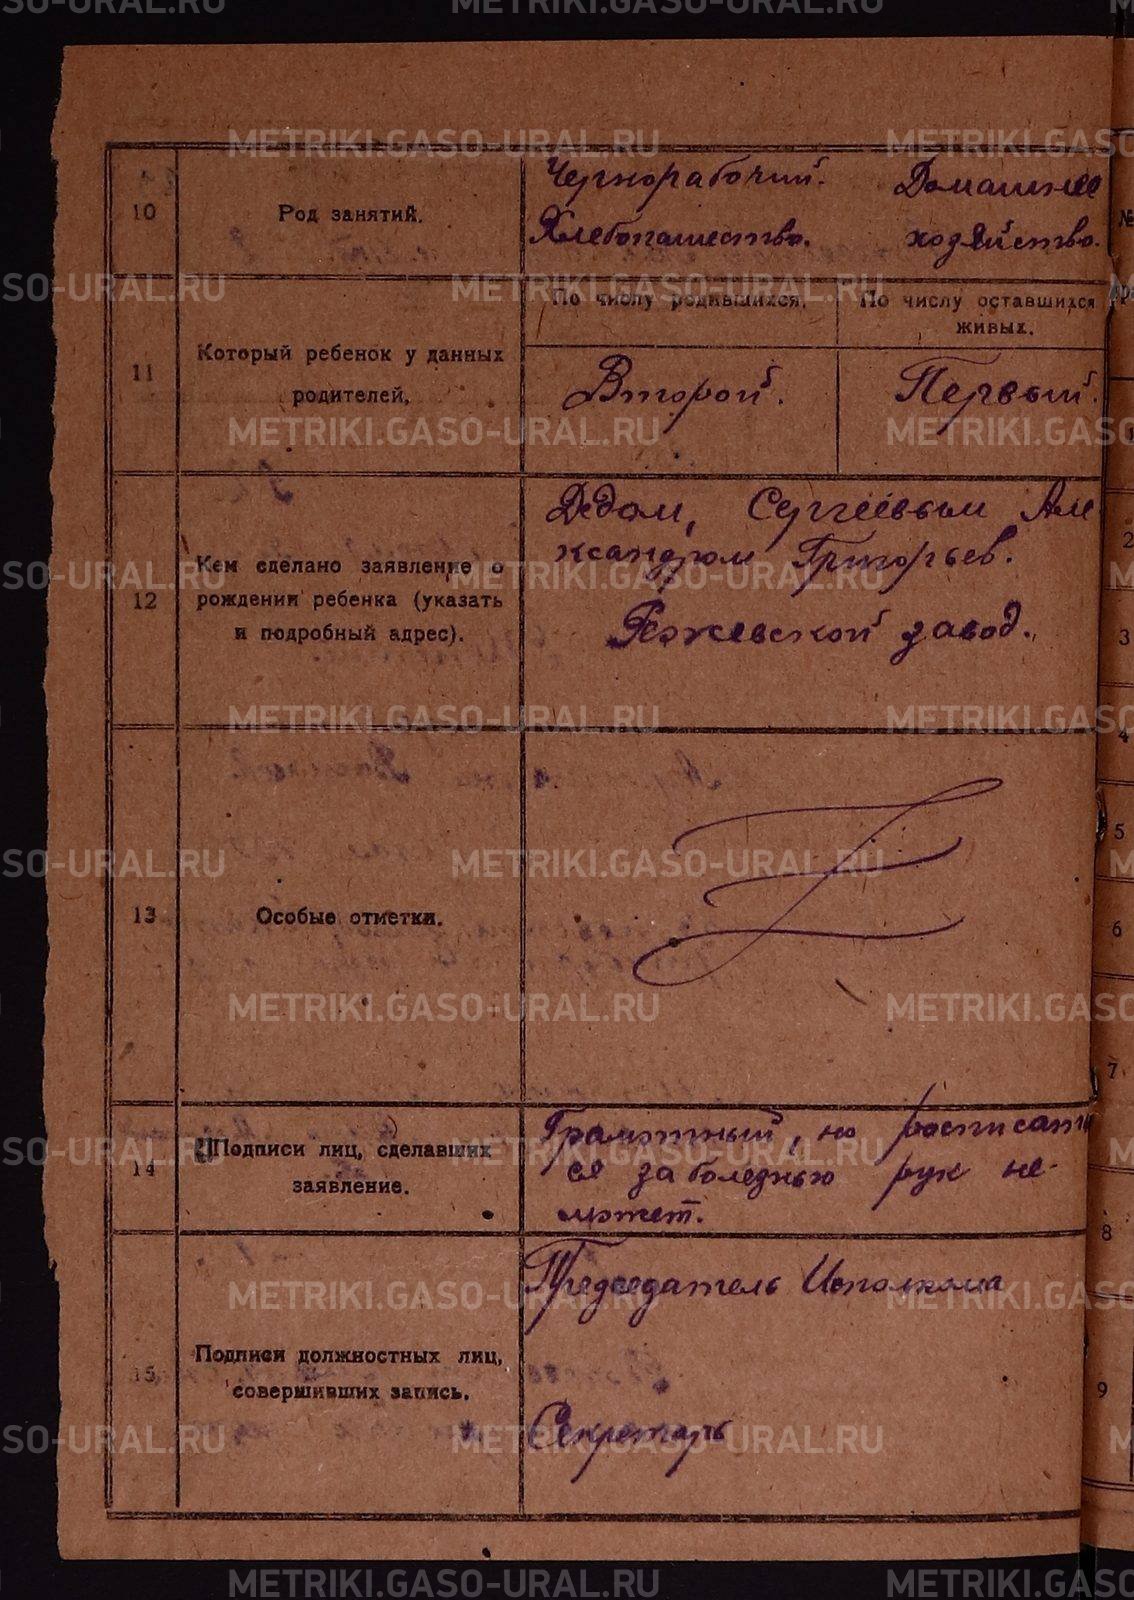 METRIKI.GASO-URAL.RU
10
Род занятий.
Чернорабочий. Домашнее
Хлебопашество. ходяйство.
11
Который ребенок у данных
родителей.
По числу родившихся.
По числу оставшихся
живых.
Второй.
Первый.
12
Кем сделано заявление о
рождении ребенка (указать
и подробный адрес).
Дедом, Сергеевым Але
ксандром Григорьев.
Режевской завод.
13
Особые отметки.
14
Подписи лиц, сделавших
заявление.
Грамотный, но росписат
ся за болезнью рук не-
может.
15
Подписи должностных лиц,
совершивших запись.
Председатель Исполкома
Секретарь
№
2
3
4
5
6
7
8
9